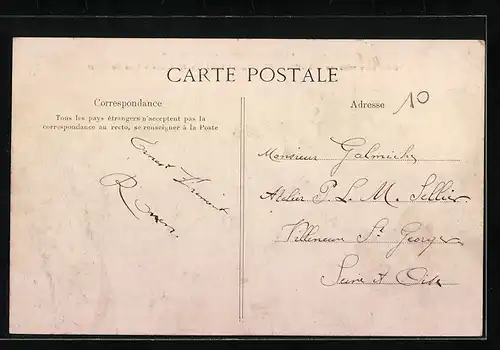 CARTE POSTALE
Correspondance
Tous les pays étrangers n'acceptent pas la
correspondance au recto, se renseigner à la Poste
Ernest Frémont
Rouen.
Adresse
10
Monsieur Galmiche
Atelier P. L. M. Sellier
Villeneuve St Georges
Seine et Oise